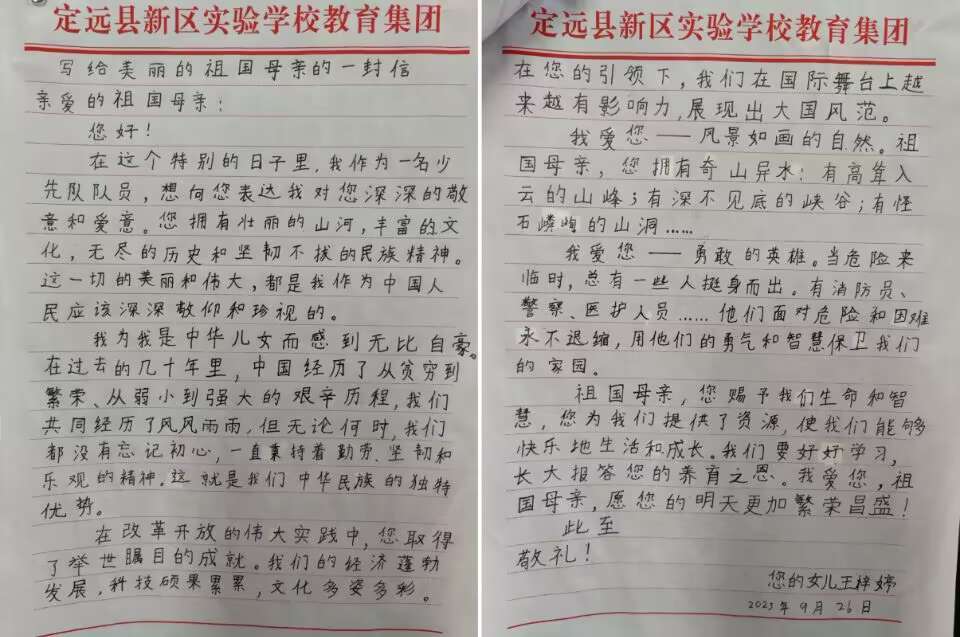 定远县新区实验学校教育集团
写给美丽的祖国母亲的一封信
亲爱的祖国母亲：
您好！
在这个特别的日子里，我作为一名少
先队队员，想向您表达我对您深深的敬
意和爱意。您拥有壮丽的山河，丰富的文
化，无尽的历史和坚韧不拔的民族精神。
这一切的美丽和伟大，都是我作为中国人
民应该深深敬仰和珍视的。
我为我是中华儿女而感到无比自豪。
在过去的几十年里，中国经历了从贫穷到
繁荣、从弱小到强大的艰辛历程，我们
共同经历了风风雨雨，但无论何时，我们
都没有忘记初心，一直秉持着勤劳、坚韧和
乐观的精神。这就是我们中华民族的独特
优势。
在改革开放的伟大实践中，您取得
了举世瞩目的成就。我们的经济蓬勃
发展，科技硕果累累，文化多姿多彩。
定远县新区实验学校教育集团
在您的引领下，我们在国际舞台上越
来越有影响力，展现出大国风范。
我爱您——风景如画的自然。祖
国母亲，您拥有奇山异水：有高耸入
云的山峰；有深不见底的峡谷；有怪
石嶙峋的山洞……
我爱您——勇敢的英雄。当危险来
临时，总有一些人挺身而出。有消防员、
警察、医护人员……他们面对危险和困难
永不退缩，用他们的勇气和智慧保卫我们
的家园。
祖国母亲，您赐予我们生命和智
慧，您为我们提供了资源，使我们能够
快乐地生活和成长。我们要好好学习，
长大报答您的养育之恩。我爱您，祖
国母亲，愿您的明天更加繁荣昌盛！
此至
敬礼！
您的女儿王梓婷
2023年9月26日